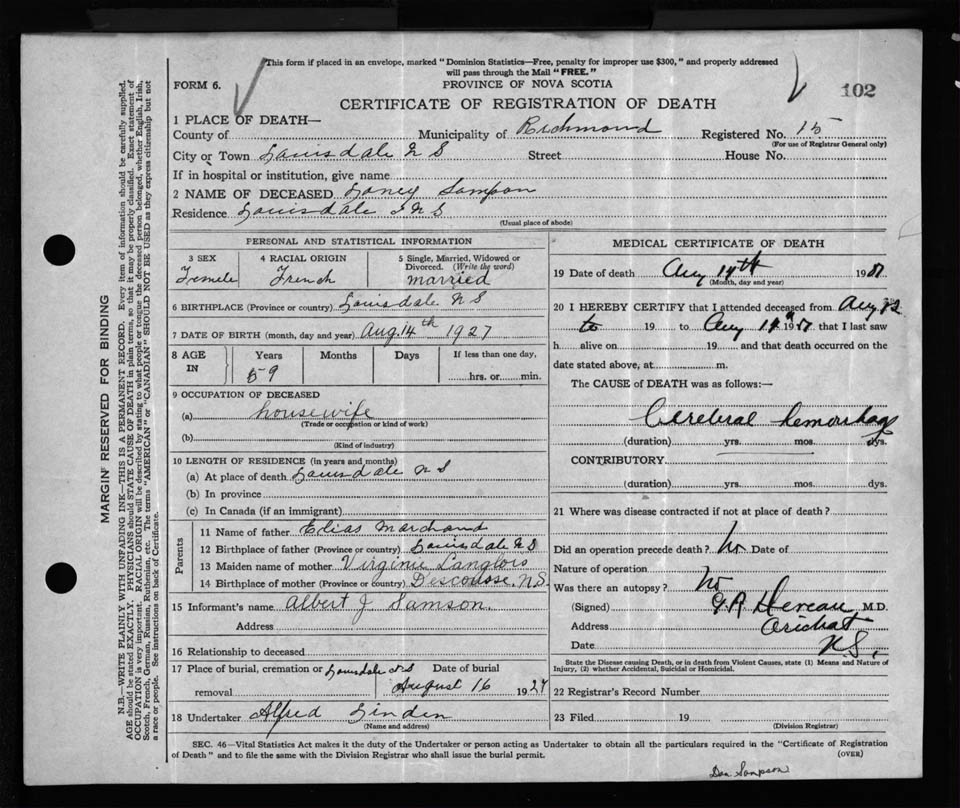 This form if placed in an envelope, marked "Dominion Statistics—Free, penalty for improper use $300," and properly addressed
will pass through the Mail "FREE."
FORM 6.
PROVINCE OF NOVA SCOTIA
102
CERTIFICATE OF REGISTRATION OF DEATH
1 PLACE OF DEATH—
County of Municipality of Richmond Registered No. 15
(For use of Registrar General only)
City or Town Louisdale N S Street House No.
If in hospital or institution, give name
2 NAME OF DECEASED Laney Sampson
Residence Louisdale N S
(Usual place of abode)
PERSONAL AND STATISTICAL INFORMATION
3 SEX 4 RACIAL ORIGIN 5 Single, Married, Widowed or
Divorced. (Write the word)
Femele French married
6 BIRTHPLACE (Province or country) Louisdale N S
7 DATE OF BIRTH (month, day and year) Aug. 14th 1927
8 AGE IN Years Months Days If less than one day,
59 hrs. or min.
9 OCCUPATION OF DECEASED
(a) housewife
(Trade or occupation or kind of work)
(b)
(Kind of industry)
10 LENGTH OF RESIDENCE (in years and months)
(a) At place of death Louisdale N S
(b) In province
(c) In Canada (if an immigrant)
Parents
11 Name of father Elias Marchand
12 Birthplace of father (Province or country) Louisdale N S
13 Maiden name of mother Virginie Langlois
14 Birthplace of mother (Province or country) Descousse, N.S.
15 Informant's name Albert J Samson.
Address
16 Relationship to deceased
17 Place of burial, cremation or Louisdale N S Date of burial
removal August 16 1927
18 Undertaker Alfred Linden
(Name and address)
MEDICAL CERTIFICATE OF DEATH
19 Date of death Aug 14th 19
(Month, day and year)
20 I HEREBY CERTIFY that I attended deceased from Aug 12
to 19 to Aug 14 19 that I last saw
h alive on 19 and that death occurred on the
date stated above, at m.
The CAUSE of DEATH was as follows:—
Cerebral hemorrhage
(duration) yrs. mos. dys.
CONTRIBUTORY
(duration) yrs. mos. dys.
21 Where was disease contracted if not at place of death?
Did an operation precede death? No Date of
Nature of operation
Was there an autopsy? No
(Signed) M.D.
Address Arichat
Date N S.
State the Disease causing Death, or in death from Violent Causes, state (1) Means and Nature of
Injury, (2) whether Accidental, Suicidal or Homicidal.
22 Registrar's Record Number
23 Filed 19
(Division Registrar)
SEC. 46—Vital Statistics Act makes it the duty of the Undertaker or person acting as Undertaker to obtain all the particulars required in the "Certificate of Registration
of Death" and to file the same with the Division Registrar who shall issue the burial permit.
(OVER)
Dan Sampson
MARGIN RESERVED FOR BINDING
N.B.—WRITE PLAINLY WITH UNFADING INK—THIS IS A PERMANENT RECORD. Every item of information should be carefully supplied.
AGE should be stated EXACTLY. PHYSICIANS should STATE CAUSE OF DEATH in plain terms, so that it may be properly classified. Exact statement of
OCCUPATION is very important. RACIAL ORIGIN will be described by stating to what people or tongue the deceased person belonged, whether English, Irish,
Scotch, French, German, Russian, Ruthenian, etc. The terms "AMERICAN" or "CANADIAN" SHOULD NOT BE USED as they express citizenship but not
a race or people. See instructions on back of Certificate.